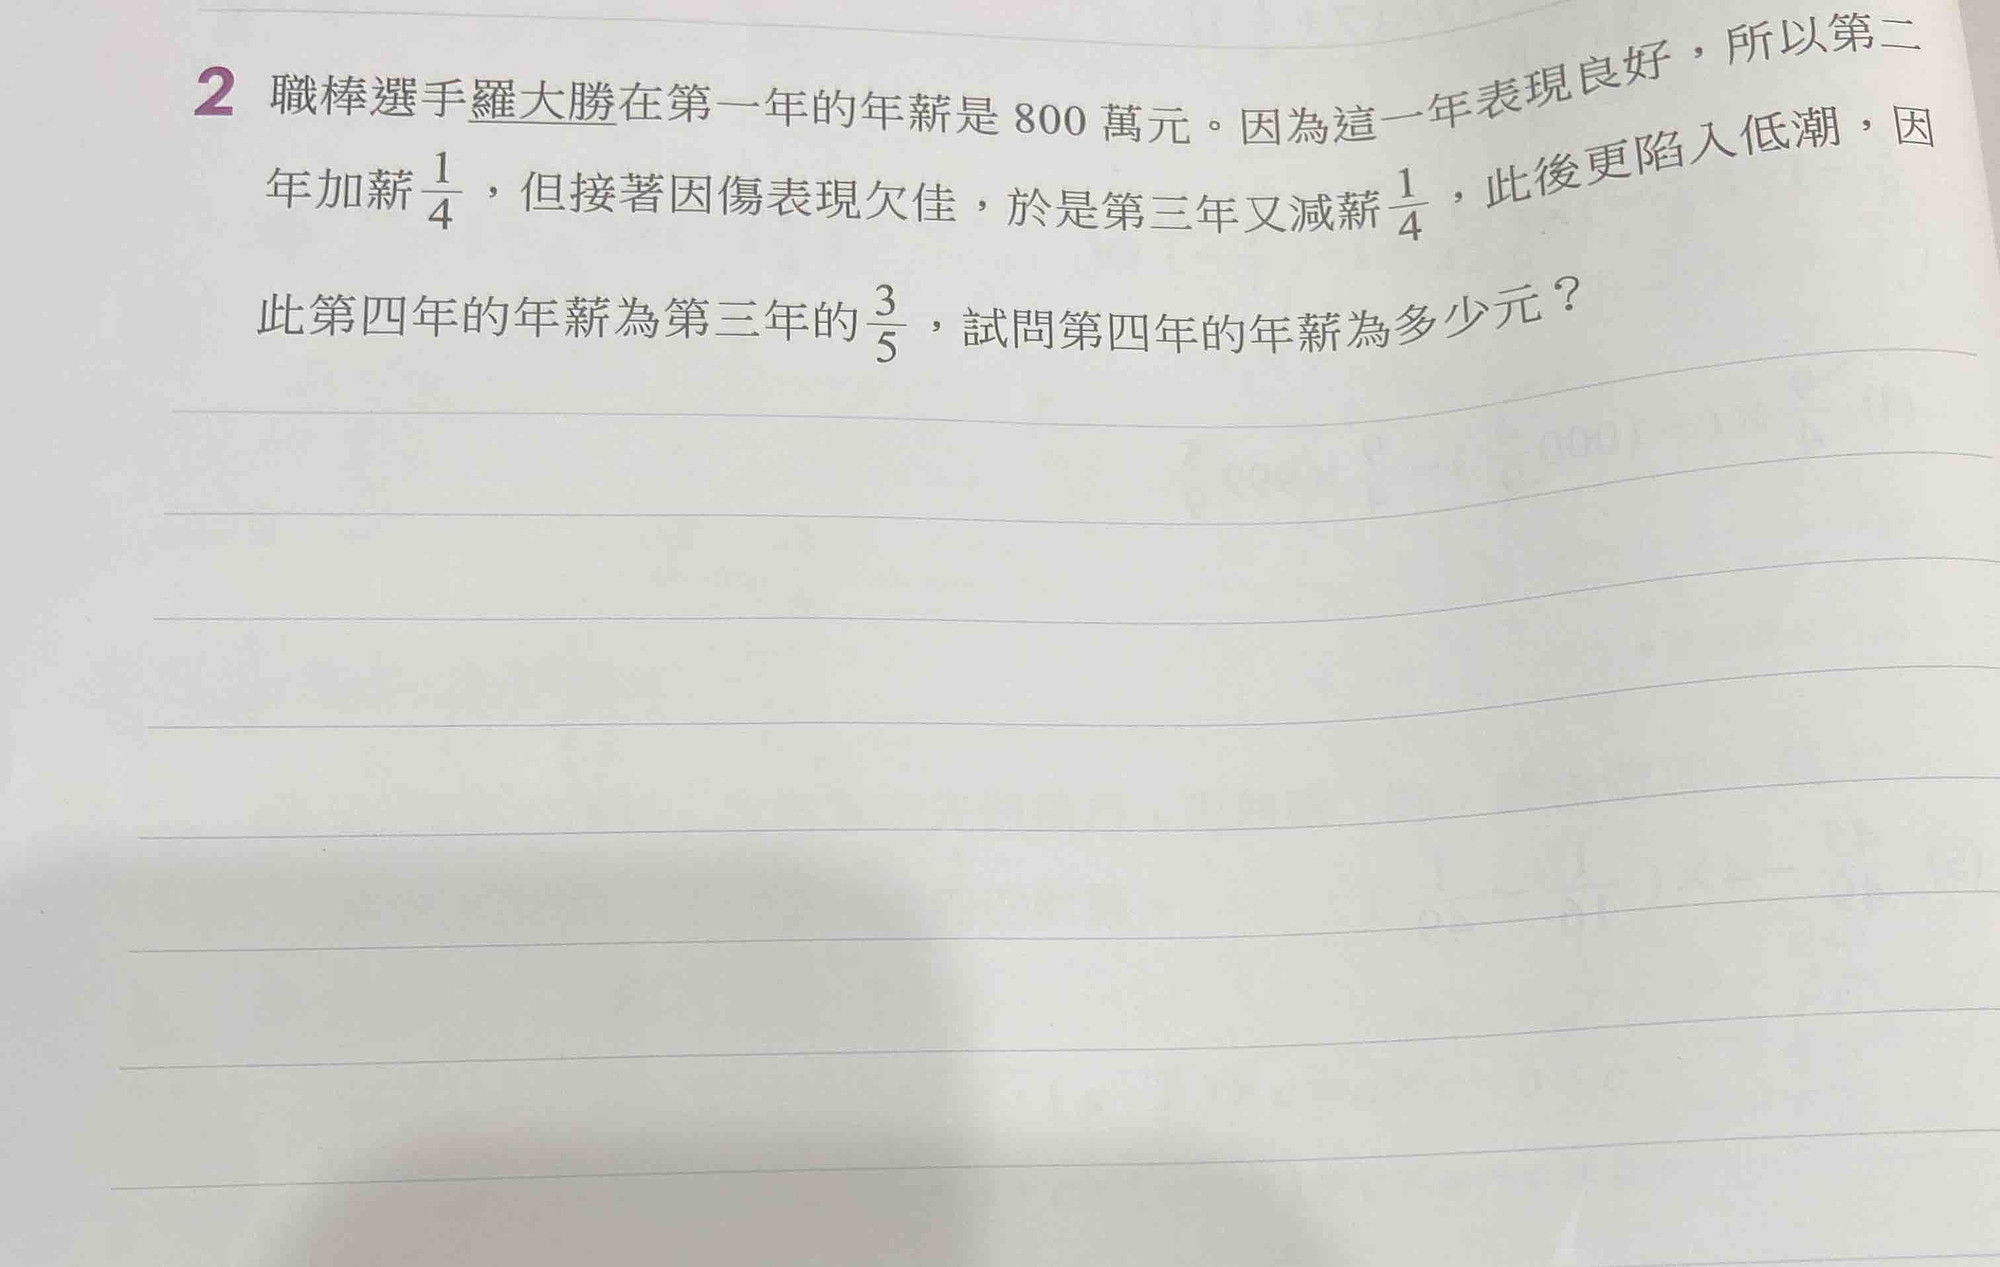 2 職棒選手羅大勝在第一年的年薪是 800 萬元。因為這一年表現良好，所以第二
年加薪 1/4，但接著因傷表現欠佳，於是第三年又減薪 1/4，此後更陷入低潮，因
此第四年的年薪為第三年的 3/5，試問第四年的年薪為多少元？